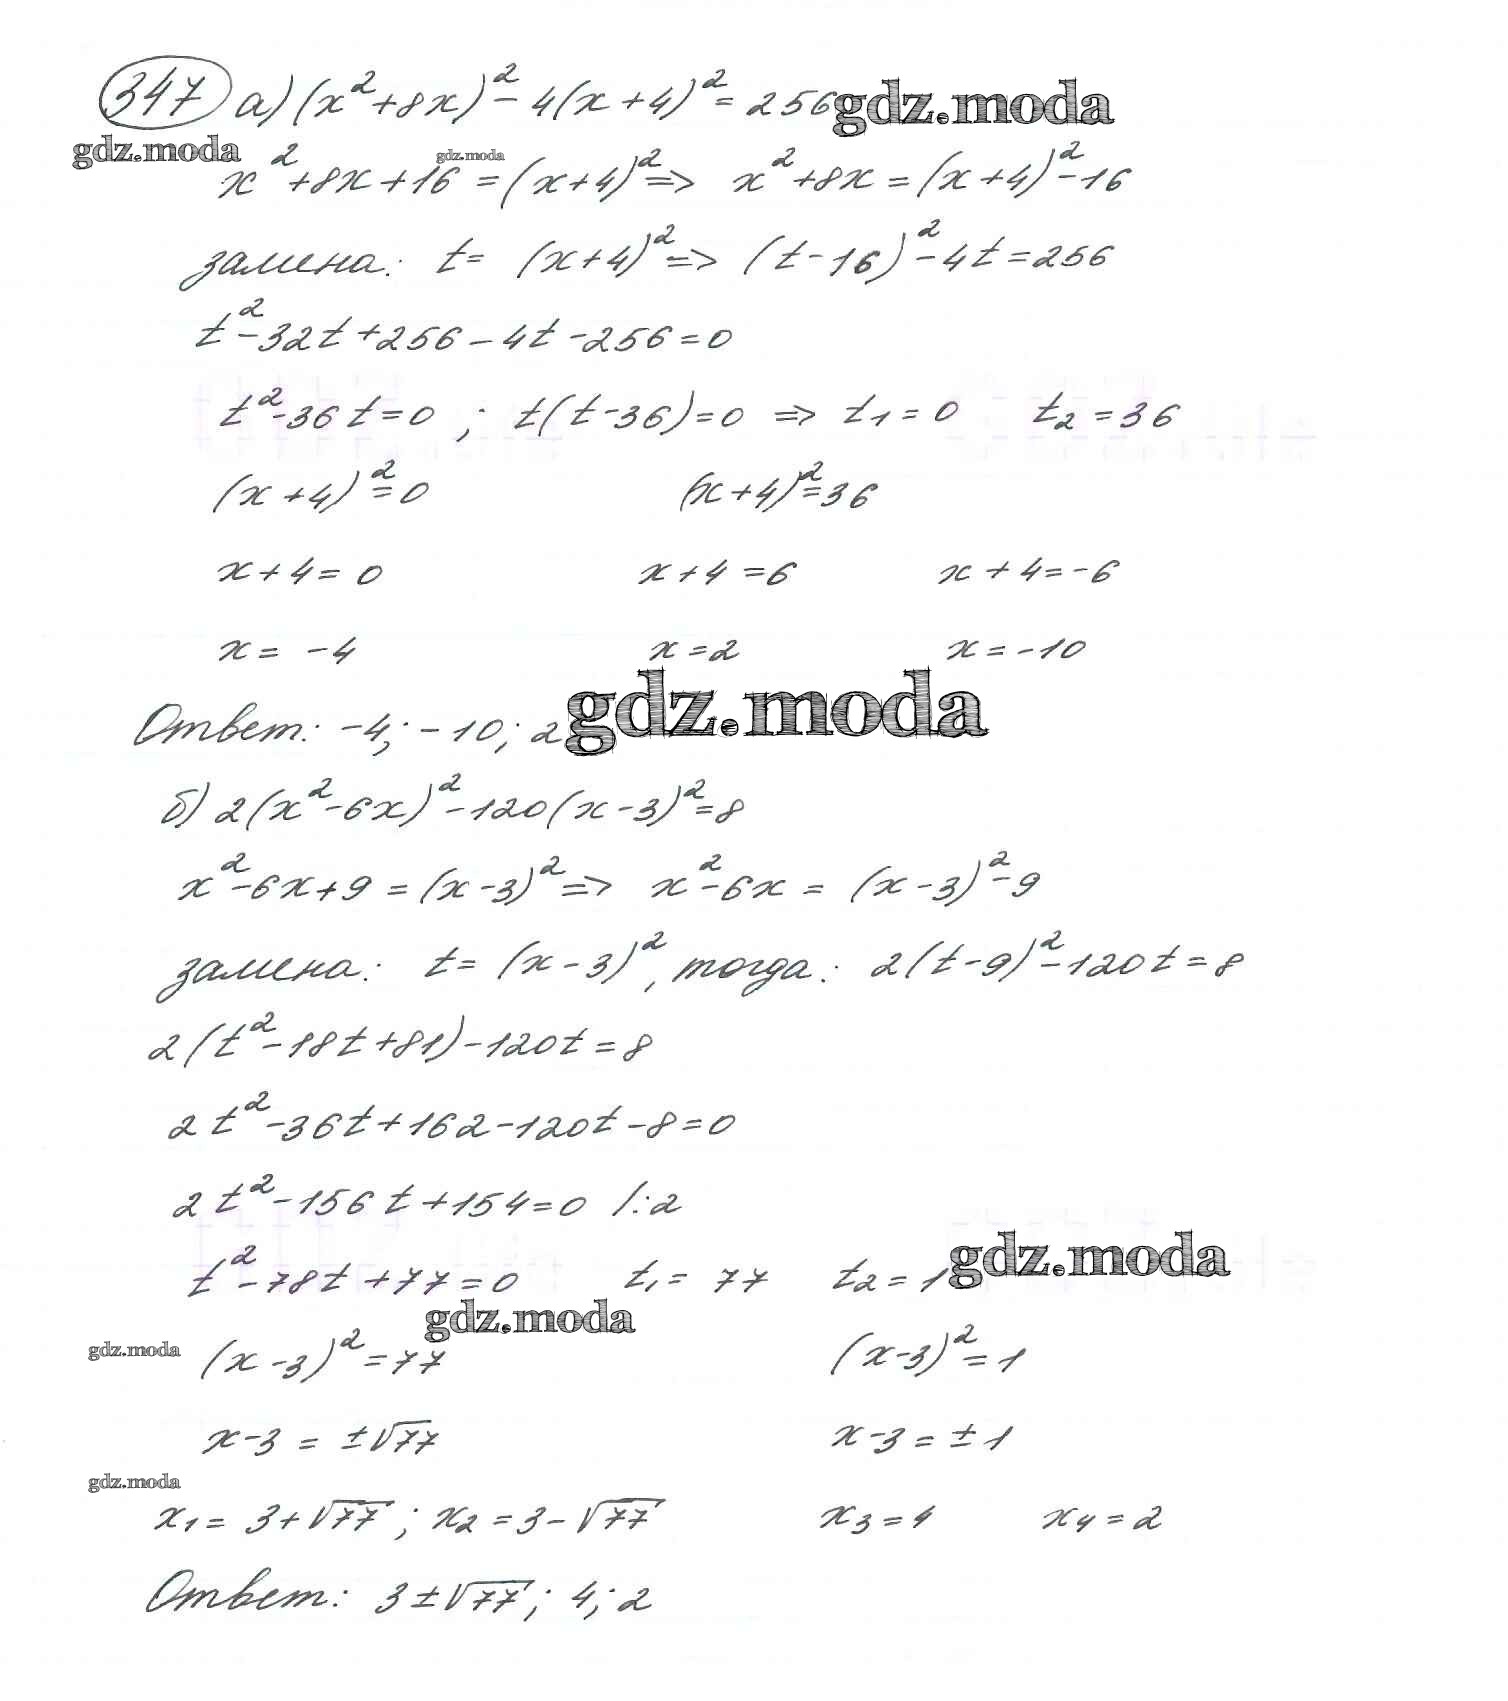 347 а) (x²+8x)²-4(x+4)²=256 gdz.moda
gdz.moda gdz.moda
x²+8x+16=(x+4)²=> x²+8x=(x+4)²-16
замена: t=(x+4)²=> (t-16)²-4t=256
t²-32t+256-4t-256=0
t²-36t=0; t(t-36)=0 => t₁=0 t₂=36
(x+4)²=0 (x+4)²=36
x+4=0 x+4=6 x+4=-6
x=-4 x=2 x=-10
Ответ: -4; -10; 2 gdz.moda
б) 2(x²-6x)²-120(x-3)²=8
x²-6x+9=(x-3)²=> x²-6x=(x-3)²-9
замена: t=(x-3)², тогда: 2(t-9)²-120t=8
2(t²-18t+81)-120t=8
2t²-36t+162-120t-8=0
2t²-156t+154=0 /:2
t²-78t+77=0 t₁=77 t₂=1 gdz.moda
gdz.moda
gdz.moda (x-3)²=77 (x-3)²=1
x-3=±√77 x-3=±1
gdz.moda
x₁=3+√77; x₂=3-√77 x₃=4 x₄=2
Ответ: 3±√77; 4; 2